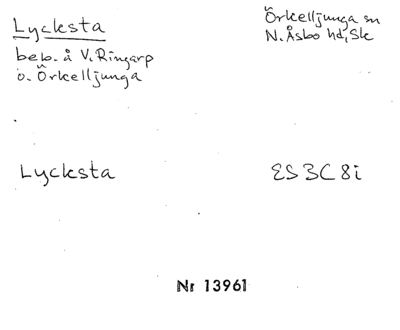 Lycksta
beb. å V. Ringarp
o. Örkelljunga
Örkelljunga sn
N. Åsbo hd, Sk
Lycksta
ES3C8i
Nr 13961